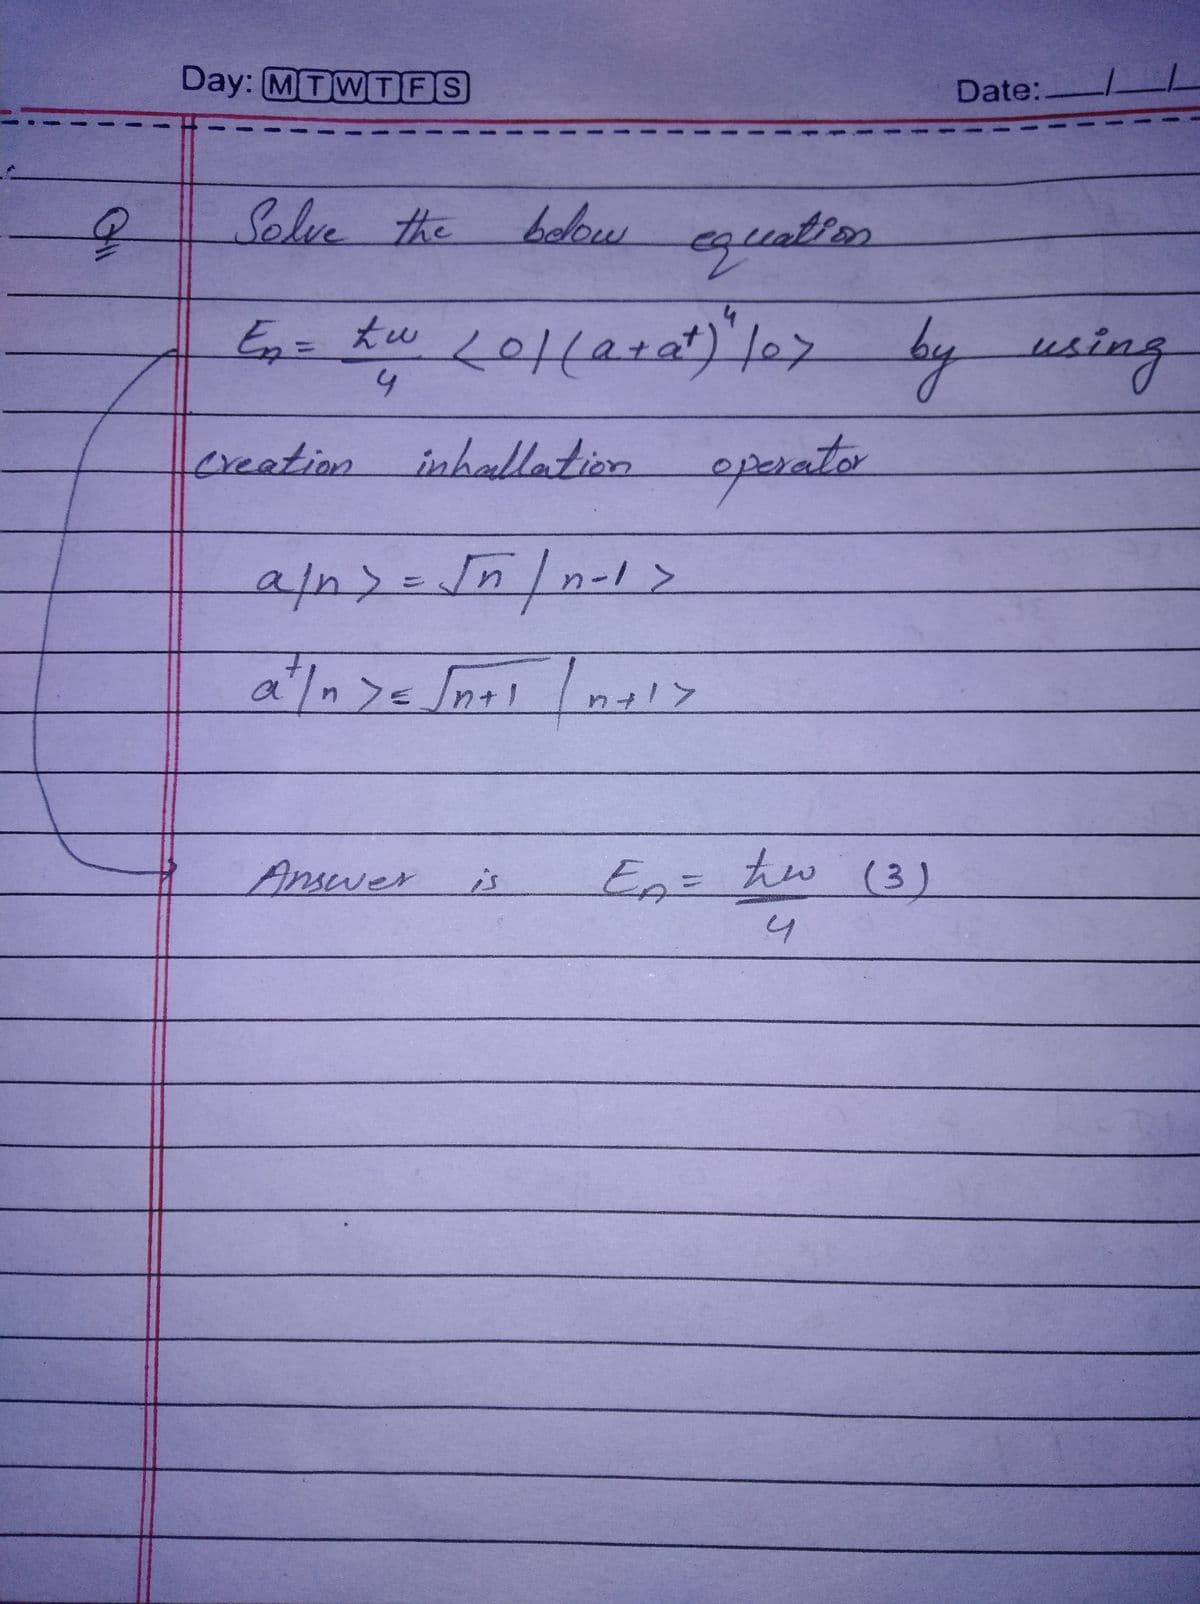 Day: M T W T F S Date: __/__/__
Q Solve the below equation
Eₙ = ħw/4 <0|(a+a†)⁴|0> by using
creation inhallation operator
a|n> = √n |n-1>
a†|n> = √n+1 |n+1>
Answer is Eₙ = ħw/4 (3)